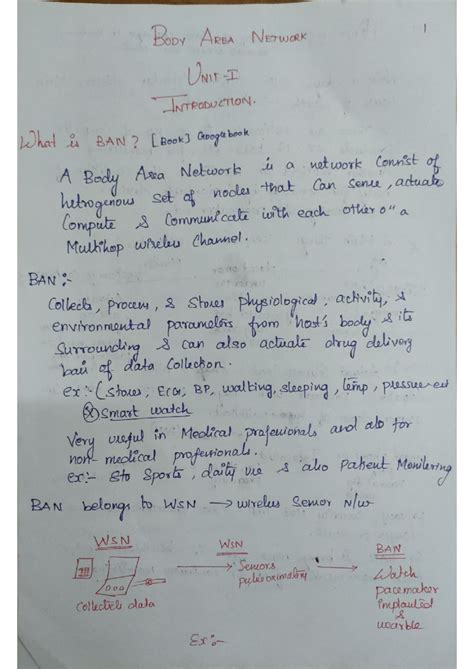 1
BODY AREA NETWORK
UNIT-I
INTRODUCTION.
What is BAN? [Book] Googlebook
A Body Area Network is a network Consist of
hetrogenous set of nodes that Can sense, actuate
Compute & Communicate with each other o" a
Multihop wireless Channel.
BAN:-
Collects, process, & Stores physiological, activity, &
environmental parameters from host's body & its
Surrounding & can also actuate drug delivery
basis of data Collection.
ex:- (Stores, ECG, BP, walking, sleeping, temp, pressure
Smart watch
Very useful in Medical professionals and also for
non-medical professionals.
ex:- Sports, daily use & also Patient Monitering
BAN belongs to WSN → wireless Sensor N/w
WSN → WSN → BAN
collects data
Sensors
pulse oximetry
Watch
pacemaker
implanted
&
warble
Ex:-